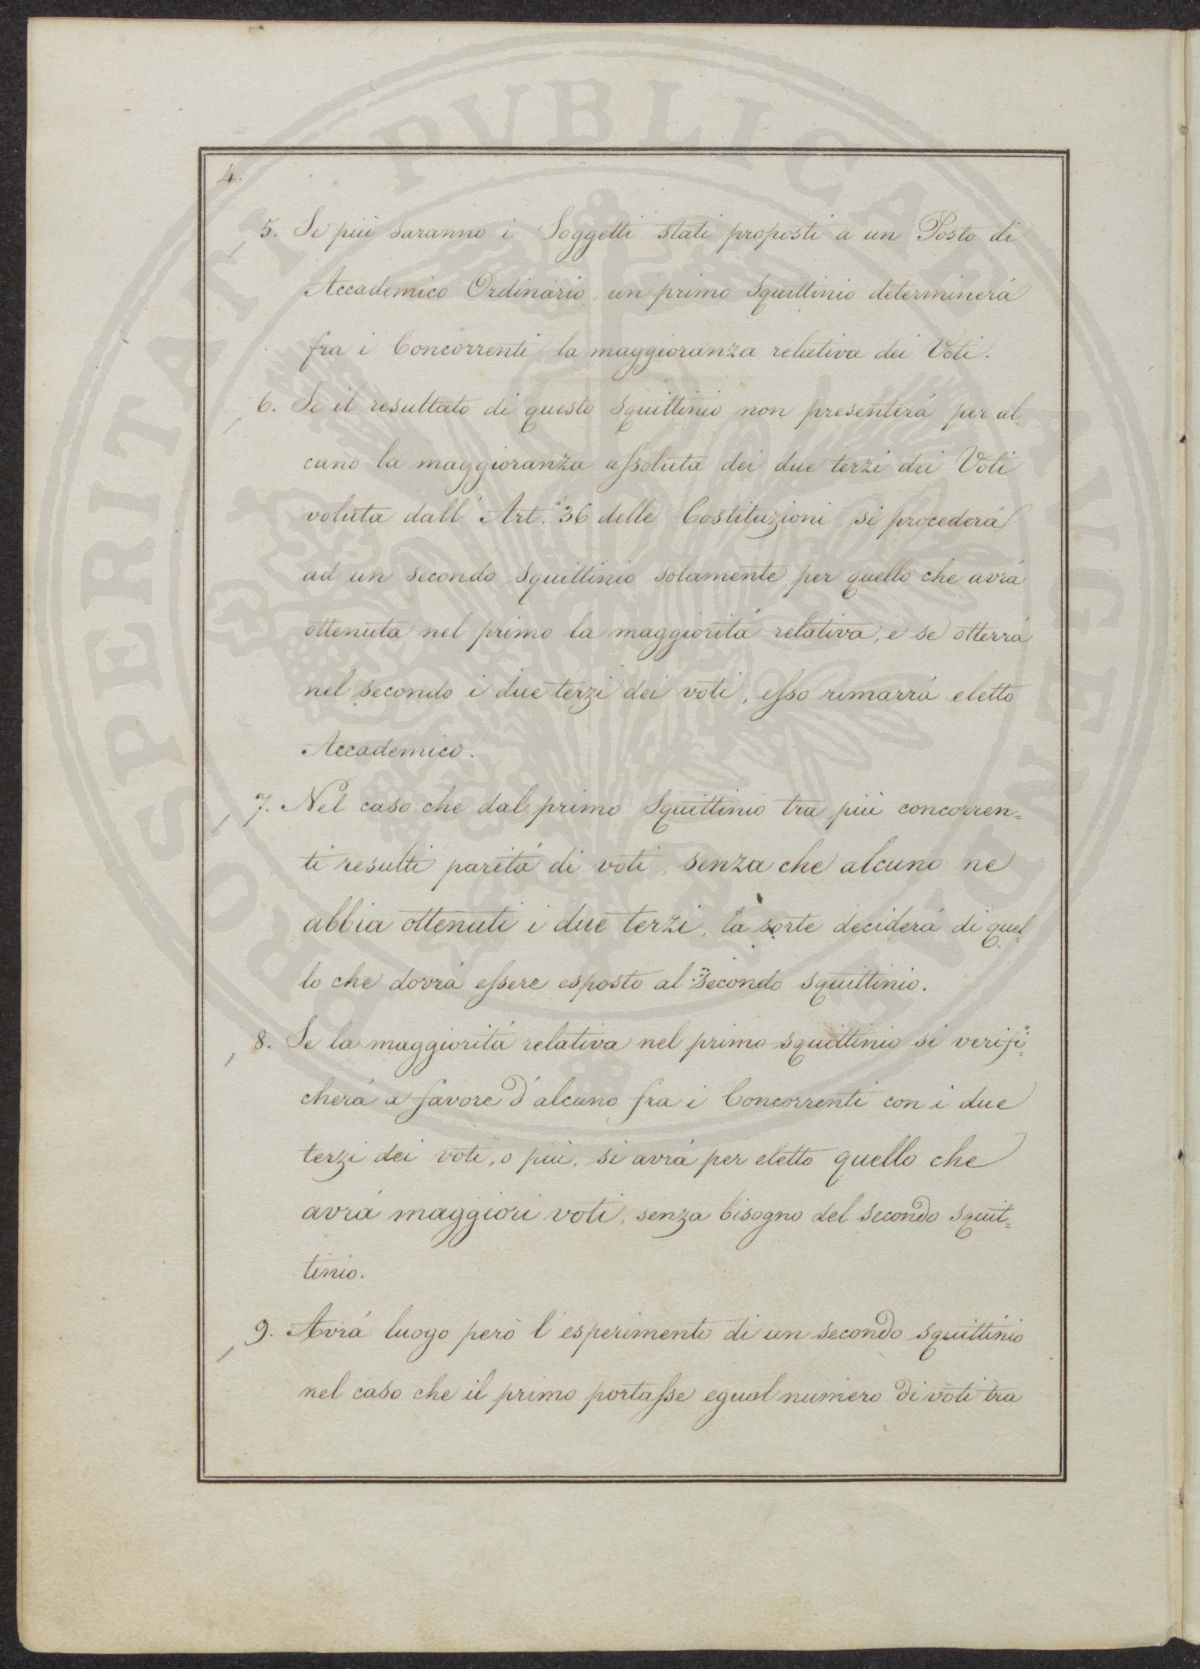 PROSPERITATI PVBLICAE AVGENDAE
4.
5. Se più saranno i Soggetti stati proposti a un Posto di
Accademico Ordinario, un primo Squittinio determinerá
fra i Concorrenti la maggioranza relativa dei Voti.
6. Se il resultato di questo Squittinio non presenterá per al-
cuno la maggioranza assoluta dei due terzi dei Voti
voluta dall' Art.° 36 delle Costituzioni si procederá
ad un secondo Squittinio solamente per quello che avrá
ottenuta nel primo la maggioritá relativa, e se otterrá
nel secondo i due terzi dei voti, esso rimarrá eletto
Accademico.
7. Nel caso che dal primo Squittinio tra più concorren=
ti resulti paritá di voti, senza che alcuno ne
abbia ottenuti i due terzi, la sorte deciderá di quel-
lo che dovrá essere esposto al secondo squittinio.
8. Se la maggioritá relativa nel primo squittinio si verifi=
cherá a favore d'alcuno fra i Concorrenti con i due
terzi dei voti, o più, si avrá per eletto quello che
avrá maggiori voti, senza bisogno del secondo squit=
tinio.
9. Avrá luogo però l'esperimento di un secondo squittinio
nel caso che il primo portasse egual numero di voti tra